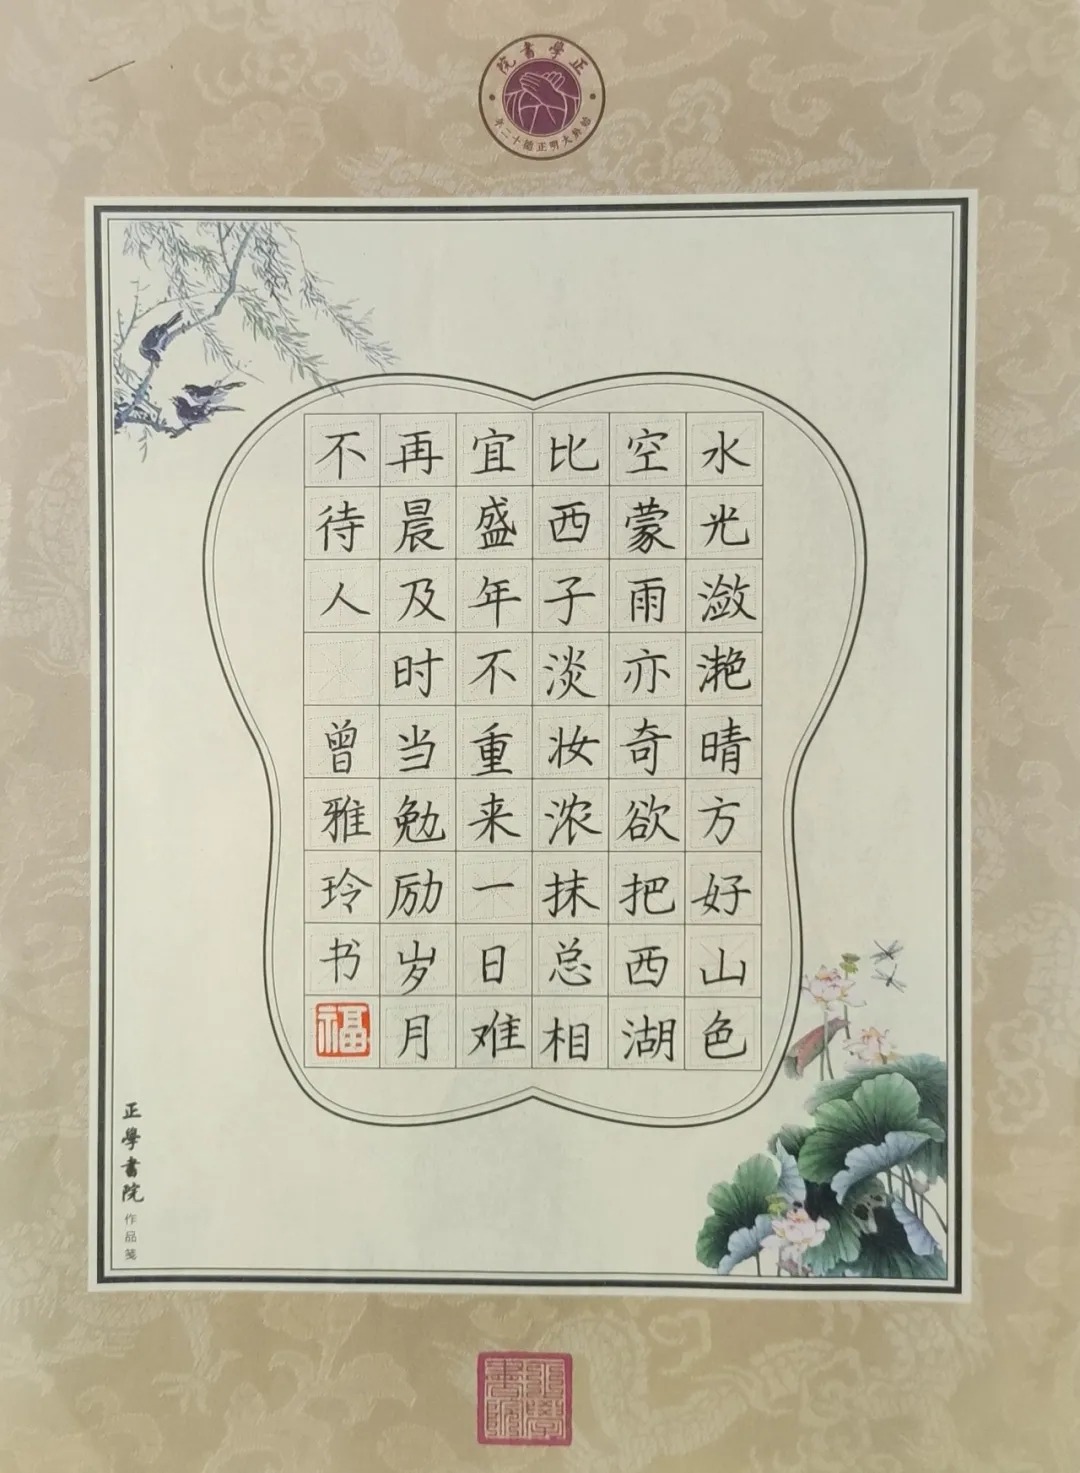 正學書院
始於大明正德十二年
水光潋滟晴方好山色
空蒙雨亦奇欲把西湖
比西子淡妆浓抹总相
宜盛年不重来一日难
再晨及时当勉励岁月
不待人 曾雅玲书
福
正學書院作品笺
正學書院